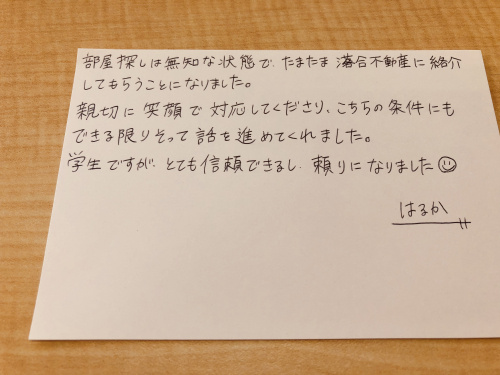 部屋探しは無知な状態で、たまたま落合不動産に紹介
してもらうことになりました。
親切に笑顔で対応してくださり、こちらの条件にも
できる限りそって話を進めてくれました。
学生ですが、とても信頼できるし、頼りになりました☺
はるか